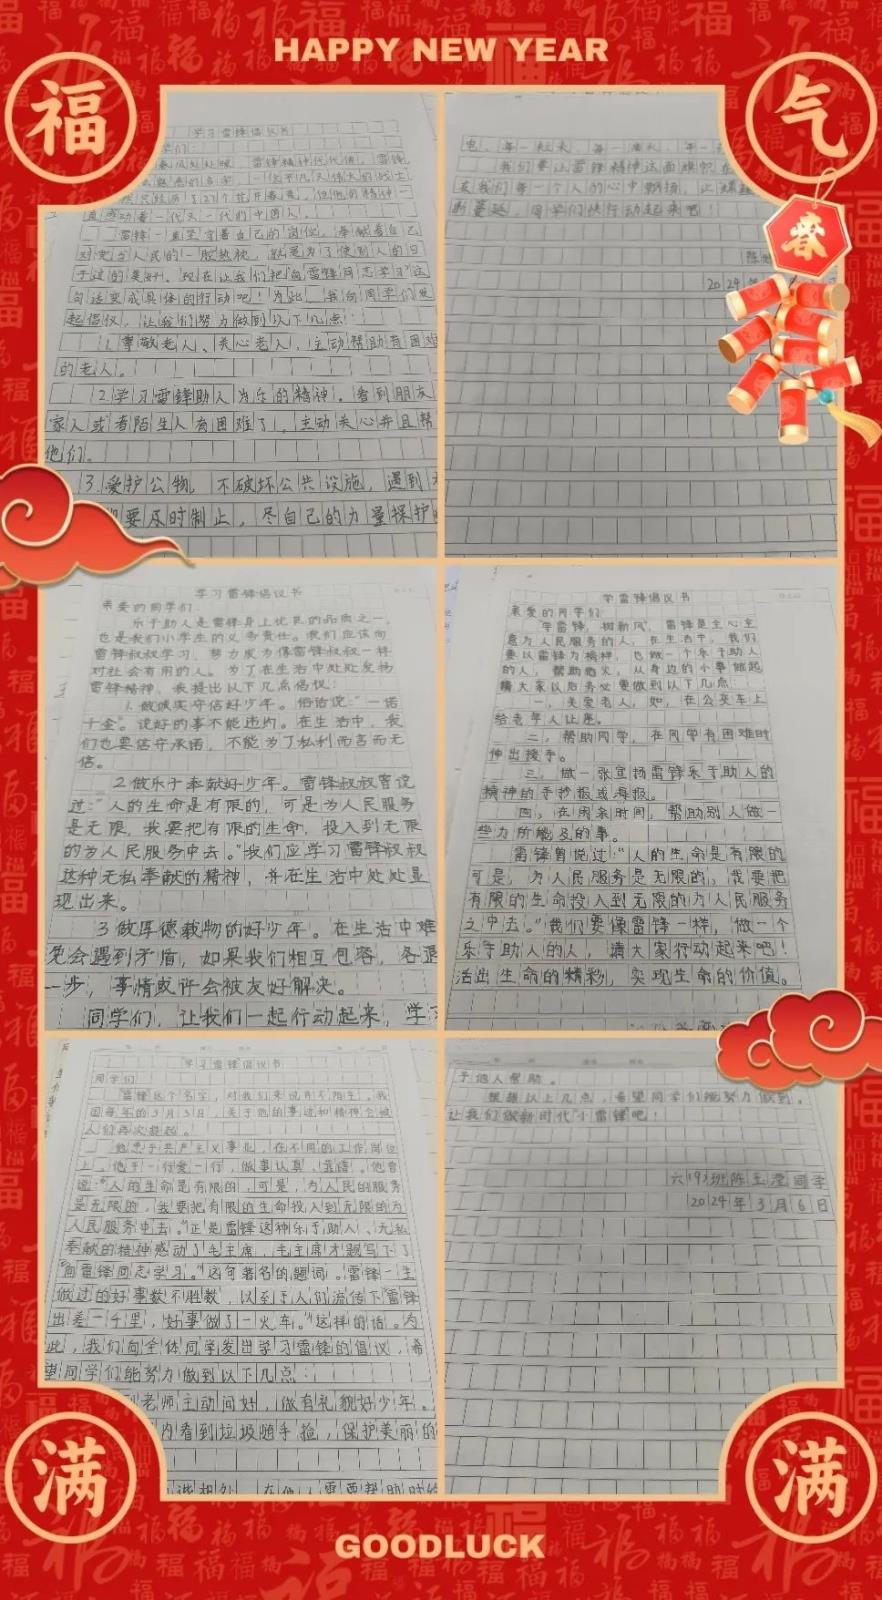 HAPPY NEW YEAR
福
气
春
学习雷锋倡议书
雷锋一直坚守着自己的岗位,奉献着自己
对党与人民的一腔热忱,就是为了使别人的日
子过的美好。现在让我们把“向雷锋同志学习”这
句话变成具体的行动吧!为此,我向同学们发
起倡议,让我们努力做到以下几点:
1.尊敬老人、关心老人,主动帮助有困难
的老人。
2.学习雷锋助人为乐的精神。看到朋友
家人或者陌生人有困难了,主动关心并且帮
他们。
3.爱护公物,不破坏公共设施,遇到
要及时制止,尽自己的力量保护
我们要让雷锋精神这面旗帜
在我们每一个人的心中飘扬,让
断蔓延,同学们快行动起来吧!
2024年
学习雷锋倡议书
亲爱的同学们:
乐于助人是雷锋身上优良的品质之一,
也是我们小学生的义务责任。我们应该向
雷锋叔叔学习,努力成为像雷锋叔叔一样
对社会有用的人。为了在生活中处处发扬
雷锋精神,我提出以下几点倡议:
1.做诚实守信好少年。俗话说:“一诺
千金”。说好的事不能违约。在生活中,我
们也要信守承诺,不能为了私利而言而无
信。
2.做乐于奉献好少年。雷锋叔叔曾说
过:“人的生命是有限的,可是为人民服务
是无限,我要把有限的生命,投入到无限
的为人民服务中去。”我们应学习雷锋叔叔
这种无私奉献的精神,并在生活中处处显
现出来。
3.做厚德载物的好少年。在生活中难
免会遇到矛盾,如果我们相互包容,各退
一步,事情或许会被友好解决。
同学们,让我们一起行动起来,学习
学雷锋倡议书
亲爱的同学们:
学雷锋,树新风,雷锋是全心全
意为人民服务的人,在生活中,我们
要以雷锋为榜样,也做一个乐于助人
的人,帮助他人,从身边的小事做起
请大家以后务必要做到以下几点:
一,关爱老人,如,在公交车上
给老年人让座。
二,帮助同学,在同学有困难时
伸出援手。
三,做一张宣扬雷锋乐于助人的
精神的手抄报或海报。
四,在闲余时间,帮助别人做一
些力所能及的事。
雷锋曾说过:“人的生命是有限的
可是,为人民服务是无限的,我要把
有限的生命投入到无限的为人民服务
之中去。”我们要像雷锋一样,做一个
乐于助人的人,请大家行动起来吧!
活出生命的精彩,实现生命的价值。
学习雷锋倡议书
同学们:
雷锋这个名字,对我们来说并不陌生。我
国每年的3月5日,关于他的事迹和精神会被
人们再次提起。
他忠于共产主义事业,在不同的工作岗位
上,他干一行爱一行,做事认真、靠谱。他曾
说:“人的生命是有限的,可是,为人民的服务
是无限的,我要把有限的生命投入到无限的为
人民服务中去。”正是雷锋这种乐于助人、无私
奉献的精神感动了毛主席,毛主席才题写下了
“向雷锋同志学习。”这句著名的题词。雷锋一生
做过的好事数不胜数,以至于人们流传下“雷锋
出差一千里,好事做了一火车。”这样的话。为
此,我们向全体同学发出学习雷锋的倡议,希
望同学们能努力做到以下几点:
老师主动问好,做有礼貌好少年。
内看到垃圾随手捡,保护美丽的
予他人帮助。
根据以上几点,希望同学们能努力做到。
让我们做新时代“小雷锋”吧!
六(9)班陈玉滢同学
2024年3月6日
满
满
GOODLUCK